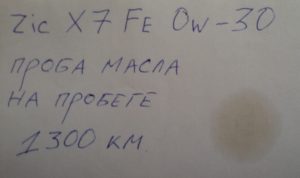 Zic X7 FE 0W-30
ПРОБА МАСЛА
НА ПРОБЕГЕ
1300 КМ.